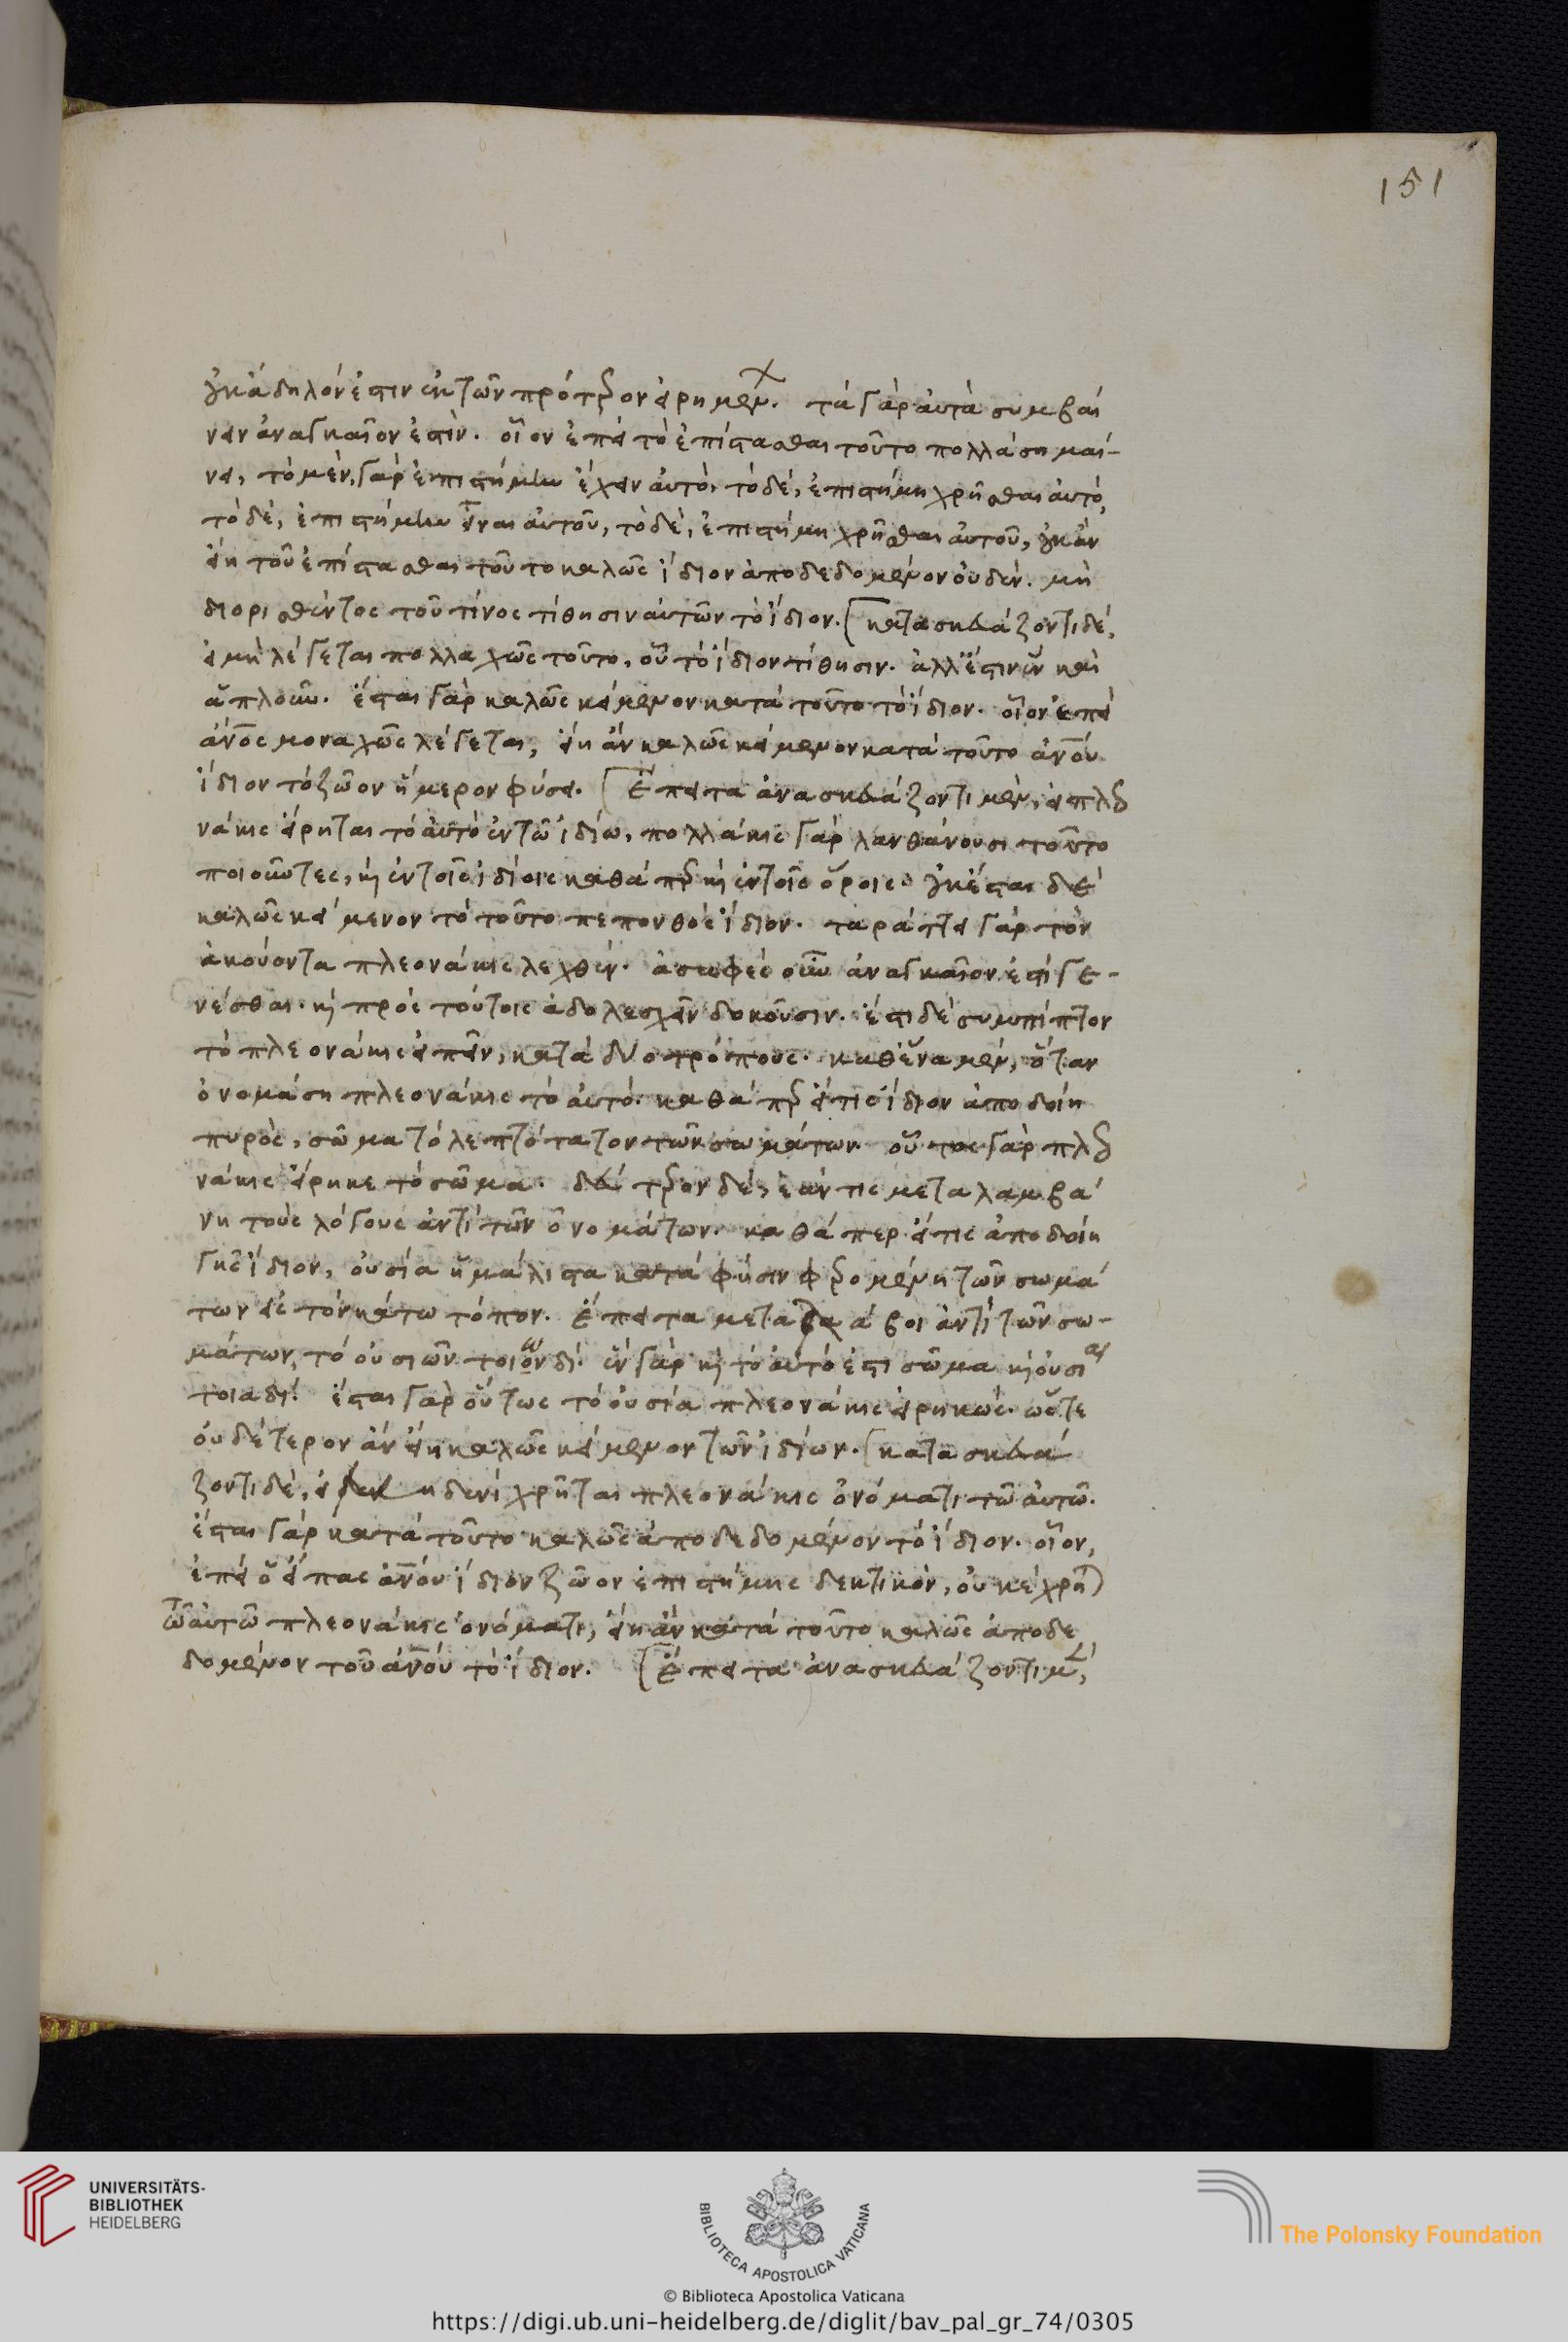 151
οὐκ ἄδηλόν ἐστιν ἐκ τῶν πρότερον εἰρημεν. τὰ γὰρ αὐτὰ συμβαί
νειν ἀναγκαῖον ἐστὶν. οἷον ἐπεὶ τὸ ἐπίστασθαι τοῦτο πολλὰ σημαί-
νει, τὸ μὲν, γὰρ ἐπιστήμην ἔχειν αὐτό. τὸ δέ, ἐπιστήμη χρῆσθαι αὐτό,
τὸ δέ, ἐπιστήμην εἶναι αὐτοῦ, τὸ δὲ, ἐπιστήμη χρῆσθαι αὐτοῦ, οὐκ ἂν
εἴη τοῦ ἐπίστασθαι τοῦτο καλῶς ἴδιον ἀποδεδομένον οὐδέν. μὴ
διορισθέντος τοῦ τίνος τίθησιν αὐτῶν τὸ ἴδιον. [κατασκευάζοντι δέ,
εἰ μὴ λέγεται πολλαχῶς τοῦτο, οὗ τὸ ἴδιον τίθησιν. ἀλλ' ἔστιν ἓν καὶ
ἁπλοῦν. ἔσται γὰρ καλῶς κείμενον κατὰ τοῦτο τὸ ἴδιον. οἷον ἐπεὶ
ἄνος μοναχῶς λέγεται, εἴη ἂν καλῶς κείμενον κατὰ τοῦτο ἀνου
ἴδιον τὸ ζῶον ἥμερον φύσει. [Ἔπειτα ἀνασκευάζοντι μεν, εἰ πλεο
νάκις εἴρηται τὸ αὐτὸ ἐν τῶ ἰδίω, πολλάκις γὰρ λανθάνουσι τοῦτο
ποιοῦντες, κὴ ἐν τοῖς ἰδίοις καθάπερ κὴ ἐν τοῖς ὅροις. οὐκ ἔσται δὲ
καλῶς κείμενον τὸ τοῦτο πεπονθὸς ἴδιον. ταράττει γὰρ τὸν
ἀκούοντα πλεονάκις λεχθέν. ἀσαφὲς οὖν ἀναγκαῖον ἐστὶ γε-
νέσθαι. κὴ πρὸς τούτοις ἀδολεσχεῖν δοκοῦσιν. ἔστι δὲ συμπίπτον
τὸ πλεονάκις εἰπεῖν, κατὰ δύο τρόπους. καθ' ἕνα μέν, ὅταν
ὀνομάση πλεονάκις τὸ αὐτό. καθάπερ εἴ τις ἴδιον ἀποδοίη
πυρὸς, σῶμα τὸ λεπτότατον τῶν σωμάτων. οὗτος γὰρ πλεο
νάκις εἴρηκε τὸ σῶμα. δεύτερον δέ, ἐάν τις μεταλαμβά
νη τοὺς λόγους ἀντὶ τῶν ὀνομάτων. καθάπερ εἴ τις ἀποδοίη
γῆς ἴδιον, οὐσία ἡ μάλιστα κατὰ φύσιν φερομένη τῶν σωμά
των εἰς τὸν κάτω τόπον. ἔπειτα μεταλάβοι ἀντὶ τῶν σω-
μάτων, τὸ οὐσιῶν τοιωνδί. ἓν γὰρ κὴ τὸ αὐτό ἐστι σῶμα κὴ οὐσία
τοιαδί. ἔσται γὰρ οὕτως τὸ οὐσία πλεονάκις εἰρηκώς. ὥστε
οὐδέτερον ἂν εἴη καλῶς κείμενον τῶν ἰδίων. [κατασκευά
ζοντι δὲ, εἰ μηδενὶ χρῆται πλεονάκις ὀνόματι τῶ αὐτῶ.
ἔσται γὰρ κατὰ τοῦτο καλῶς ἀποδεδομένον τὸ ἴδιον. οἷον,
ἐπεὶ ὁ εἴπας ἀνου ἴδιον ζῶον ἐπιστήμης δεκτικὸν, οὐ κέχρη
τῶ αὐτῶ πλεονάκις ὀνόματι, εἴη ἂν κατὰ τοῦτο καλῶς ἀποδε
δομένον τοῦ ἀνου τὸ ἴδιον. [Ἔπειτα ἀνασκευάζοντι μέν,
UNIVERSITÄTS-
BIBLIOTHEK
HEIDELBERG
BIBLIOTECA APOSTOLICA VATICANA
The Polonsky Foundation
© Biblioteca Apostolica Vaticana
https://digi.ub.uni-heidelberg.de/diglit/bav_pal_gr_74/0305